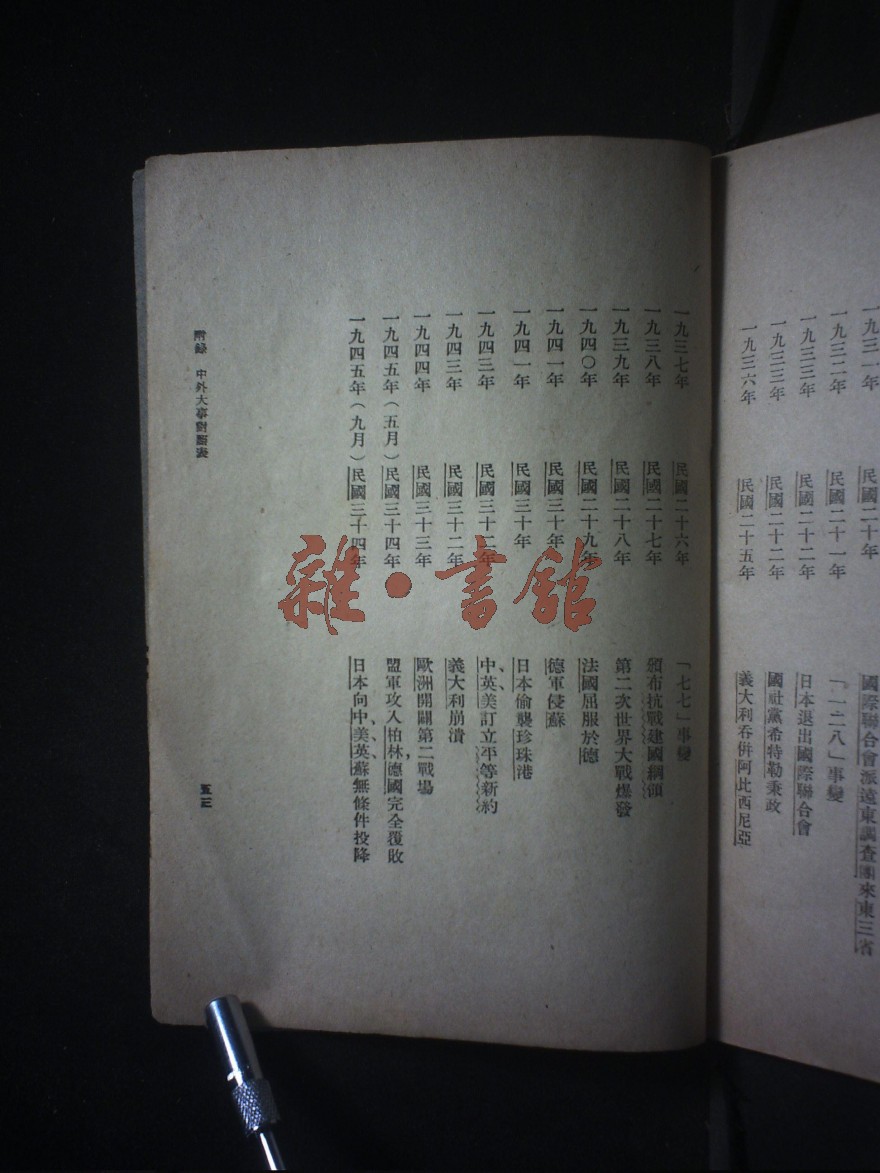 一九三一年 民國二十年 國際聯合會派遠東調查團來東三省
一九三二年 民國二十一年 「一二八」事變
一九三三年 民國二十二年 日本退出國際聯合會
一九三三年 民國二十二年 國社黨希特勒秉政
一九三六年 民國二十五年 義大利吞併阿比西尼亞
一九三七年 民國二十六年 「七七」事變
一九三八年 民國二十七年 頒布抗戰建國綱領
一九三九年 民國二十八年 第二次世界大戰爆發
一九四〇年 民國二十九年 法國屈服於德
一九四一年 民國三十年 德軍侵蘇
一九四一年 民國三十年 日本偷襲珍珠港
一九四三年 民國三十二年 中、英、美訂立平等新約
一九四三年 民國三十二年 義大利崩潰
一九四四年 民國三十三年 歐洲開闢第二戰場
一九四五年(五月) 民國三十四年 盟軍攻入柏林，德國完全覆敗
一九四五年(九月) 民國三十四年 日本向中、美、英、蘇無條件投降
附錄 中外大事對照表
五三
雜·書館